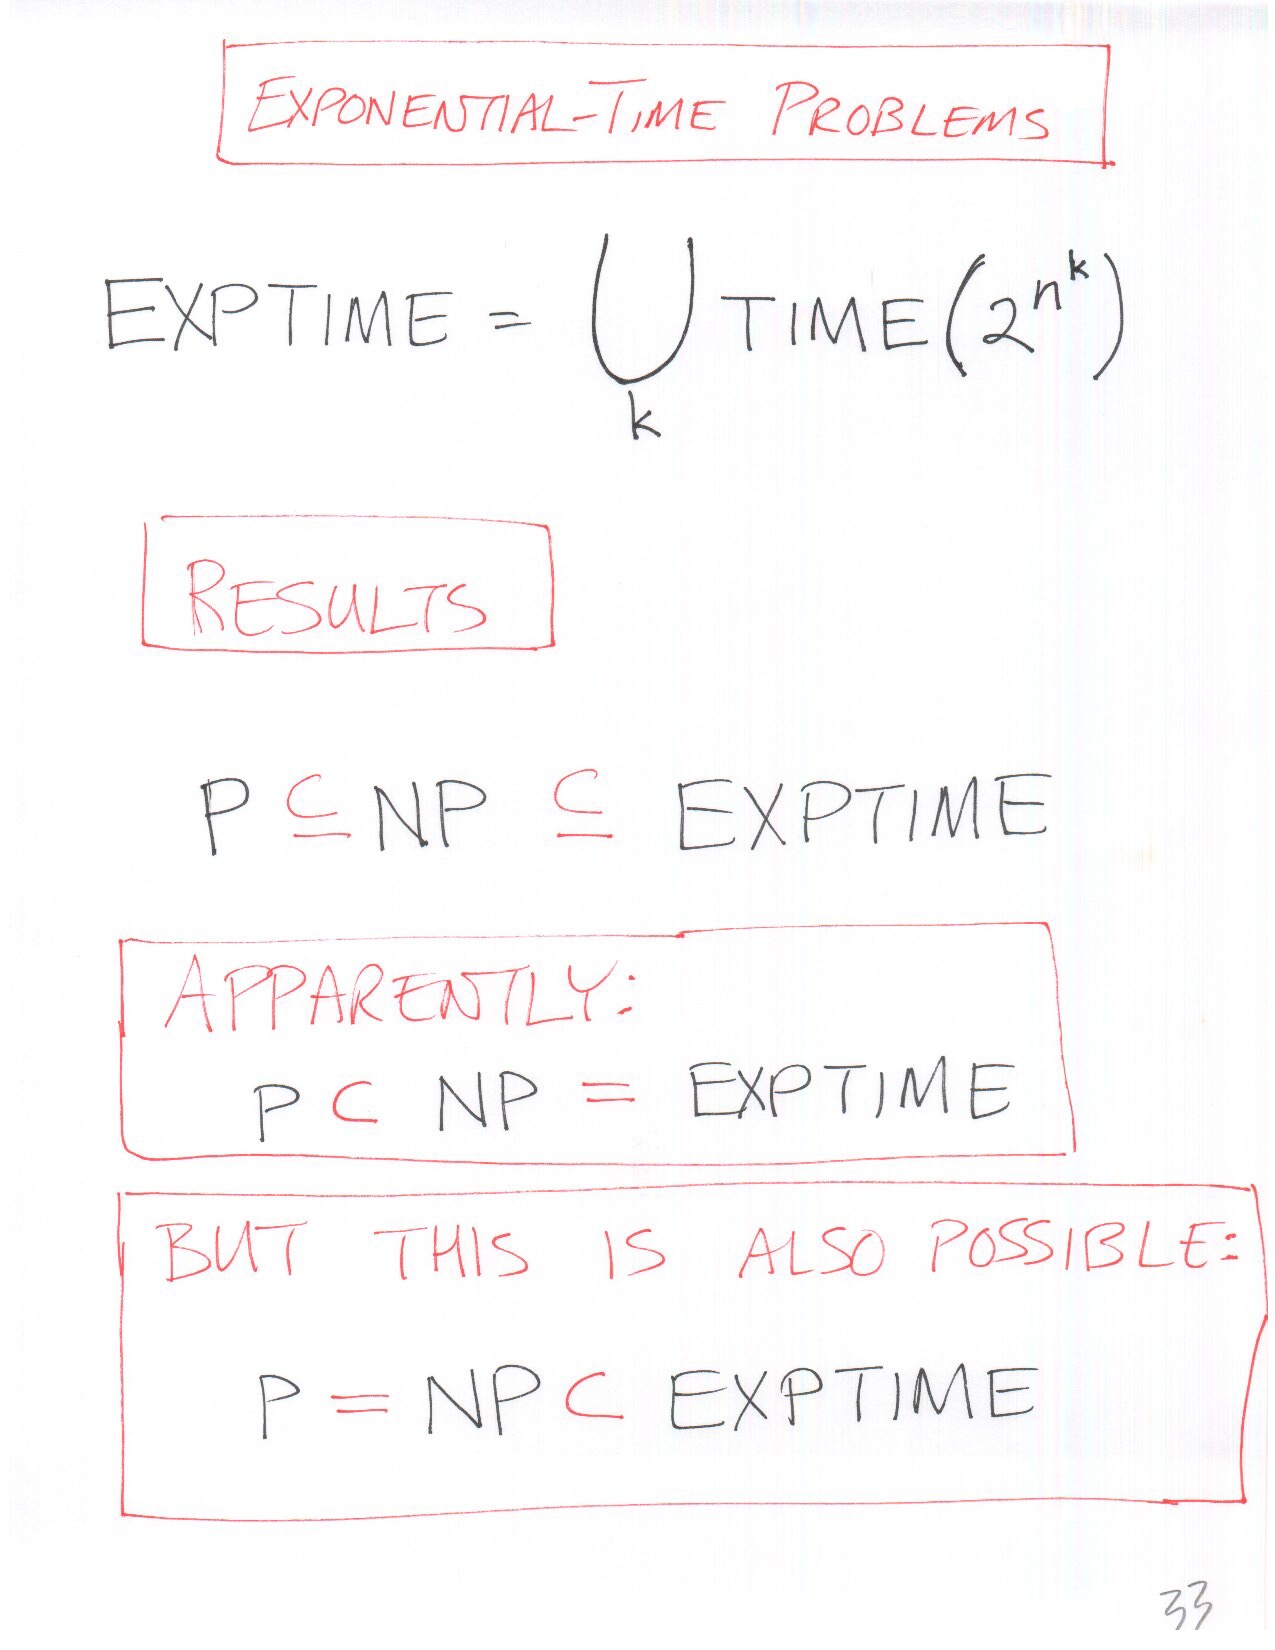 EXPONENTIAL-TIME PROBLEMS
EXPTIME = ⋃ TIME(2^n^k)
k
RESULTS
P ⊆ NP ⊆ EXPTIME
APPARENTLY:
P ⊂ NP = EXPTIME
BUT THIS IS ALSO POSSIBLE:
P = NP ⊂ EXPTIME
33